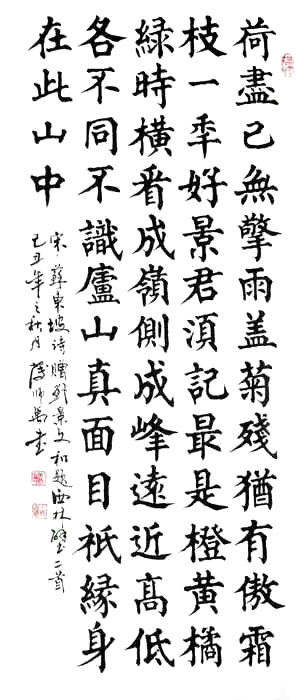 荷盡已無擎雨盖菊殘猶有傲霜
枝一秊好景君須記最是橙黃橘
緑時橫看成嶺側成峰遠近高低
各不同不識廬山真面目祇緣身
在此山中
宋·蘇東坡诗贈劉景文和題西林壁二首
己丑年之秋月